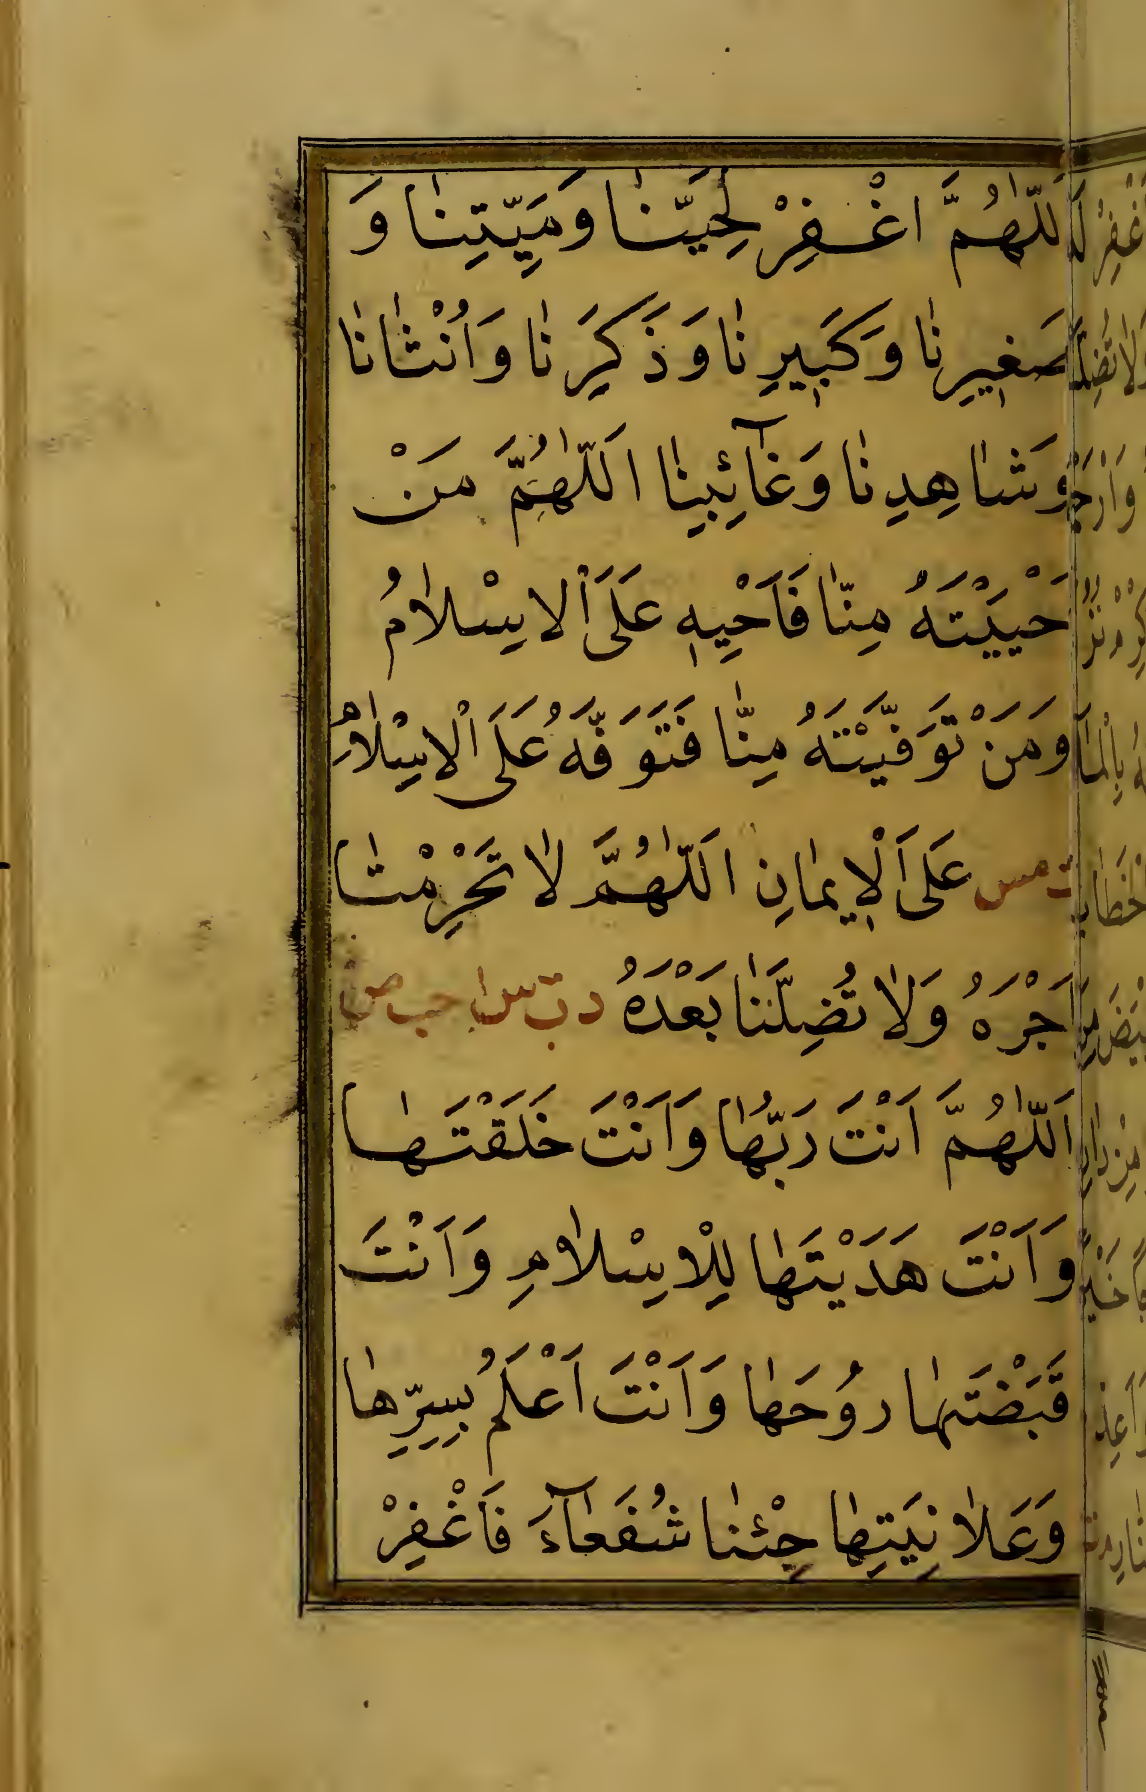 اَللّٰهُمَّ اغْفِرْ لِحَيِّنَا وَمَيِّتِنَا وَ
صَغِيرِنَا وَكَبِيرِنَا وَذَكَرِنَا وَاُنْثَانَا
وَشَاهِدِنَا وَغَآئِبِنَا اَللّٰهُمَّ مَنْ
اَحْيَيْتَهُ مِنَّا فَاَحْيِهِ عَلَى الْاِسْلَامُ
وَمَنْ تَوَفَّيْتَهُ مِنَّا فَتَوَفَّهُ عَلَى الْاِسْلَامِ
ت مس عَلَى الْاِيمَانِ اَللّٰهُمَّ لَا تَحْرِمْنَا
اَجْرَهُ وَلَا تُضِلَّنَا بَعْدَهُ د ت س ا حب ص
اَللّٰهُمَّ اَنْتَ رَبُّهَا وَاَنْتَ خَلَقْتَهَا
وَاَنْتَ هَدَيْتَهَا لِلْاِسْلَامِ وَاَنْتَ
قَبَضْتَهَا رُوحَهَا وَاَنْتَ اَعْلَمُ بِسِرِّهَا
وَعَلَانِيَتِهَا جِئْنَا شُفَعَآءَ فَاغْفِرْ